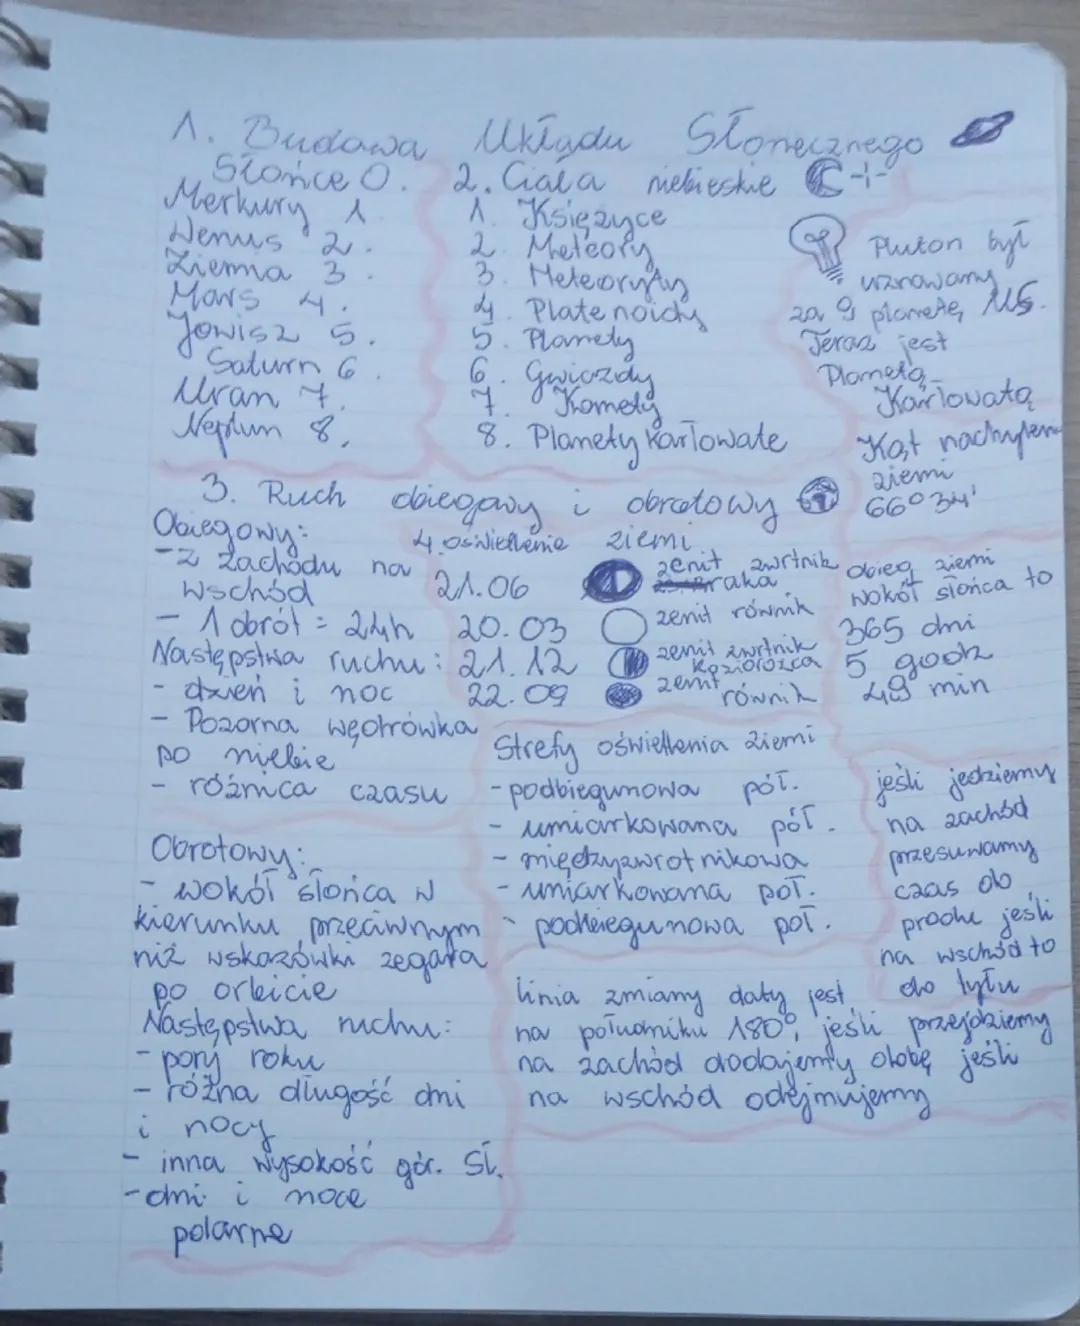 1. Budowa Układu Słonecznego
Słońce 0.
Merkury 1.
Wenus 2.
Ziemia 3.
Mars 4.
Jowisz 5.
Saturn 6.
Uran 7.
Neptun 8.
2. Ciała niebieskie
1. Księżyce
2. Meteory
3. Meteoryty
4. Platenoidy
5. Planety
6. Gwiazdy
7. Komety
8. Planety karłowate
Pluton był
uznawany
za 9 planetę US.
Teraz jest
Planetą
Karłowatą
Kąt nachylen
ziemi
66°34'
3. Ruch obiegowy i obrotowy
ziemi
Obiegowy:
- z zachodu na
wschód
- 1 obrót = 24h
Następstwa ruchu:
- dzień i noc
- Pozorna wędrówka
po niebie
- różnica czasu
4. oświetlenie
21.06 zenit zwrtnik
raka
20.03 zenit równik
21.12 zenit zwrtnik
Koziorożca
22.09 zenit równik
obieg ziemi
wokół słońca to
365 dni
5 godz
49 min
Strefy oświetlenia ziemi
- podbiegunowa pół.
- umiarkowana pół.
- międzyzwrotnikowa
- umiarkowana poł.
- podbiegunowa poł.
jeśli jedziemy
na zachód
przesuwamy
czas do
przodu jeśli
na wschód to
do tyłu
Obrotowy:
- wokół słońca w
kierunku przeciwnym
niż wskazówki zegara
po orbicie
Następstwa ruchu:
- pory roku
- różna długość dni
i nocy
- inna wysokość gór. Sł.
- dni i noce
polarne
linia zmiany daty jest
na południku 180°, jeśli przejdziemy
na zachód dodajemy dobę jeśli
na wschód odejmujemy